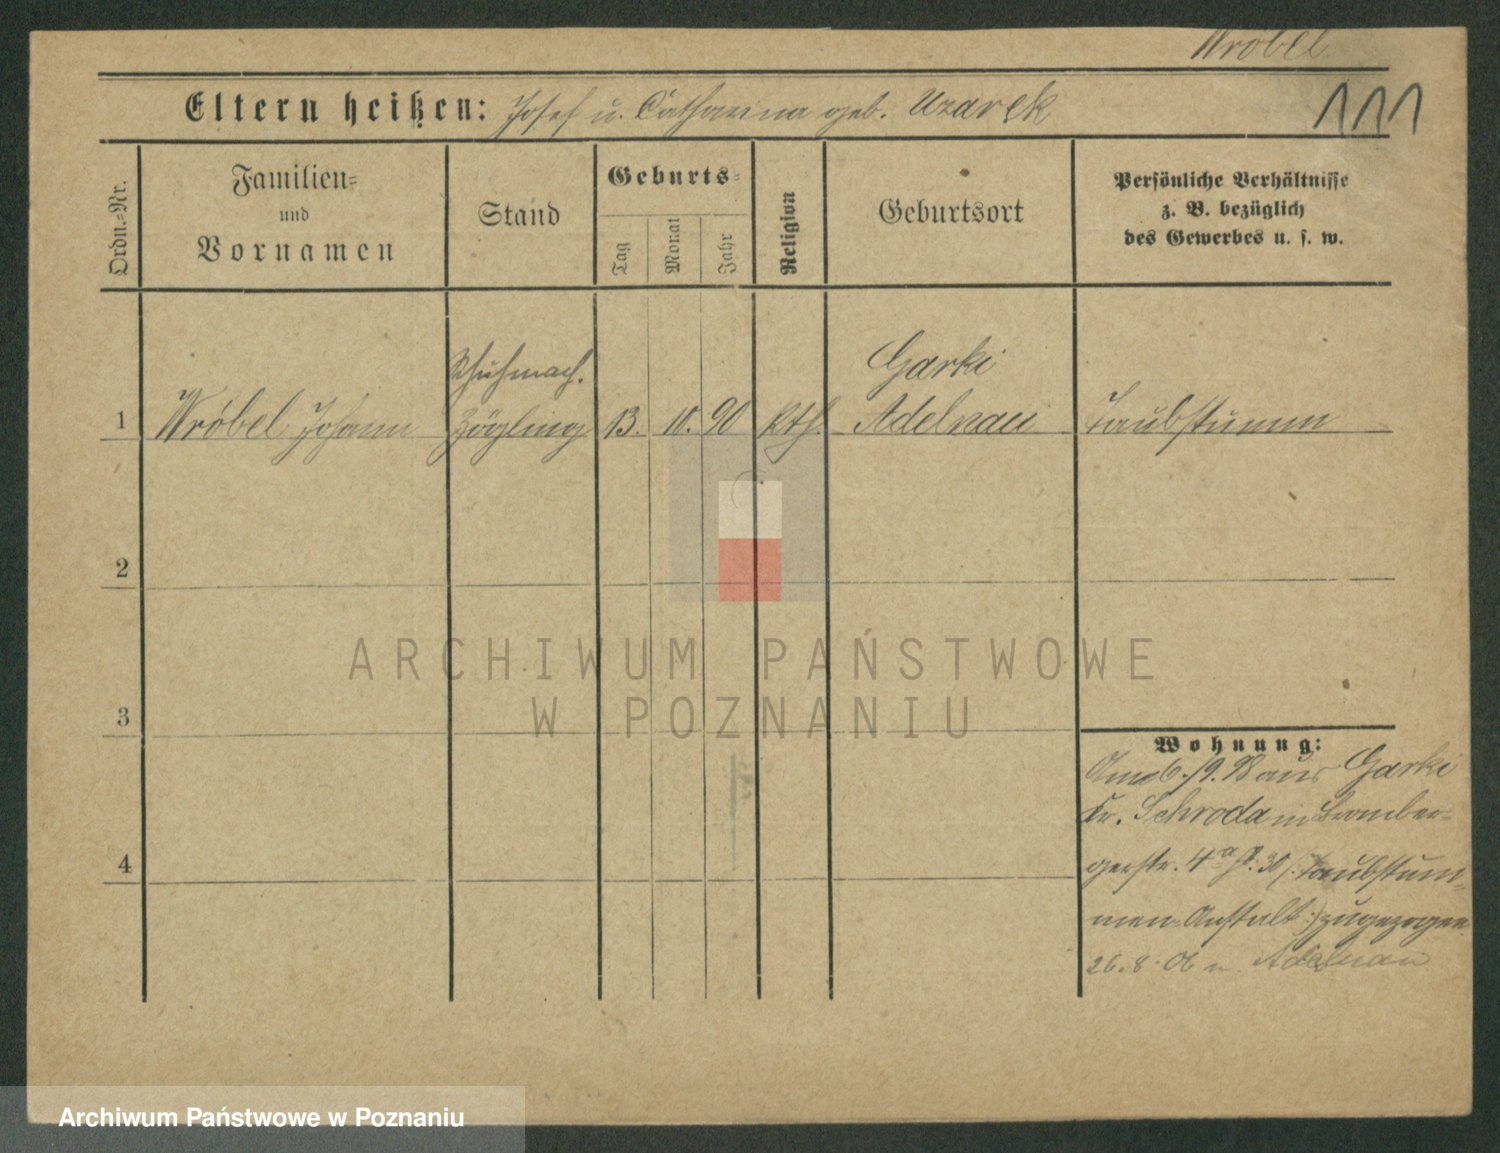 Wróbel
Eltern heißen: Josef u. Catharina geb. Uzarek
111
Ordn.=Nr.
Familien=
und
Vornamen
Stand
Geburts=
Tag
Monat
Jahr
Religion
Geburtsort
Persönliche Verhältnisse
z. B. bezüglich
des Gewerbes u. s. w.
Schuhmach.
Garki
1 Wróbel Johann Zögling 13. 10. 90 kth. Adelnau Taubstumm
2
3
4
Wohnung:
Am 6./9. 98 aus Garki
Kr. Schroda in Bromber=
gerstr. 4a b. (Taubstum=
men=Anstalt) zugezogen
26. 8. 06 n. Adelnau
ARCHIWUM PAŃSTWOWE
W POZNANIU
Archiwum Państwowe w Poznaniu